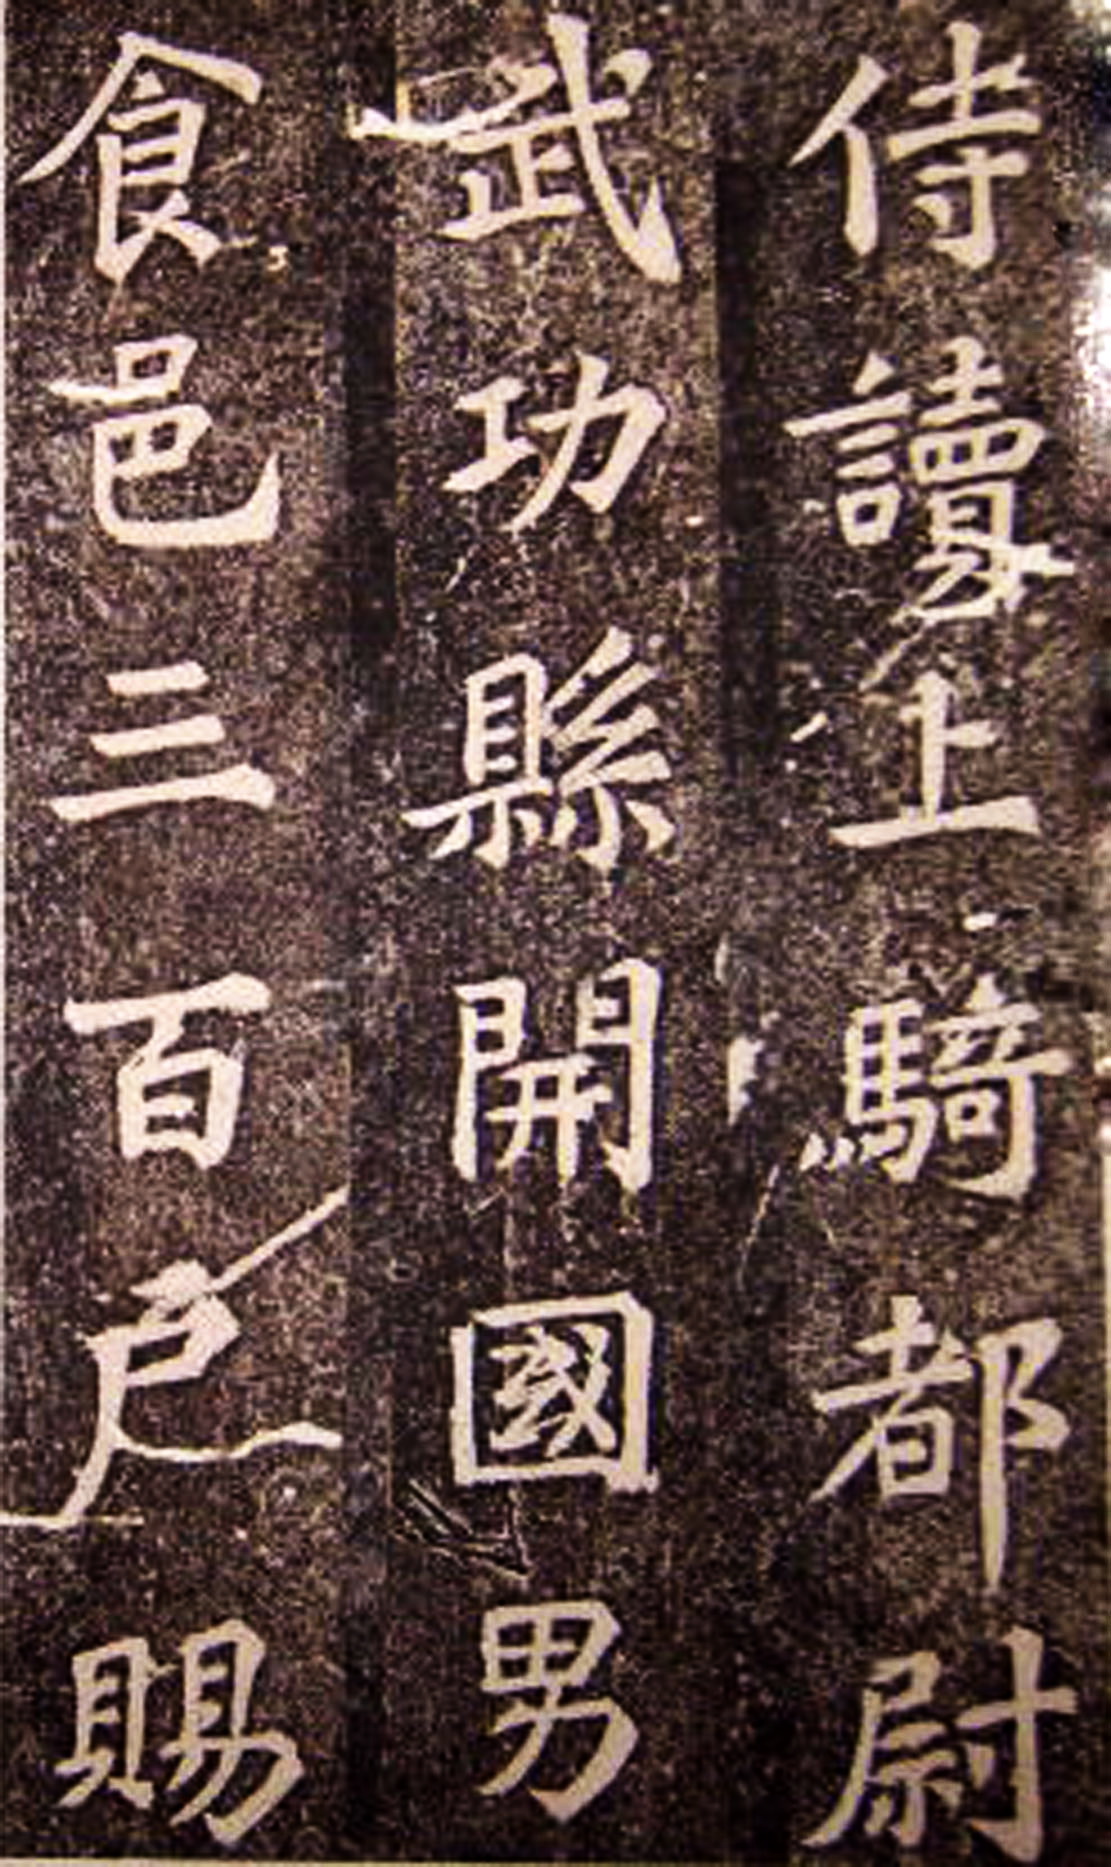 侍讀上騎都尉
武功縣開國男
食邑三百戶賜